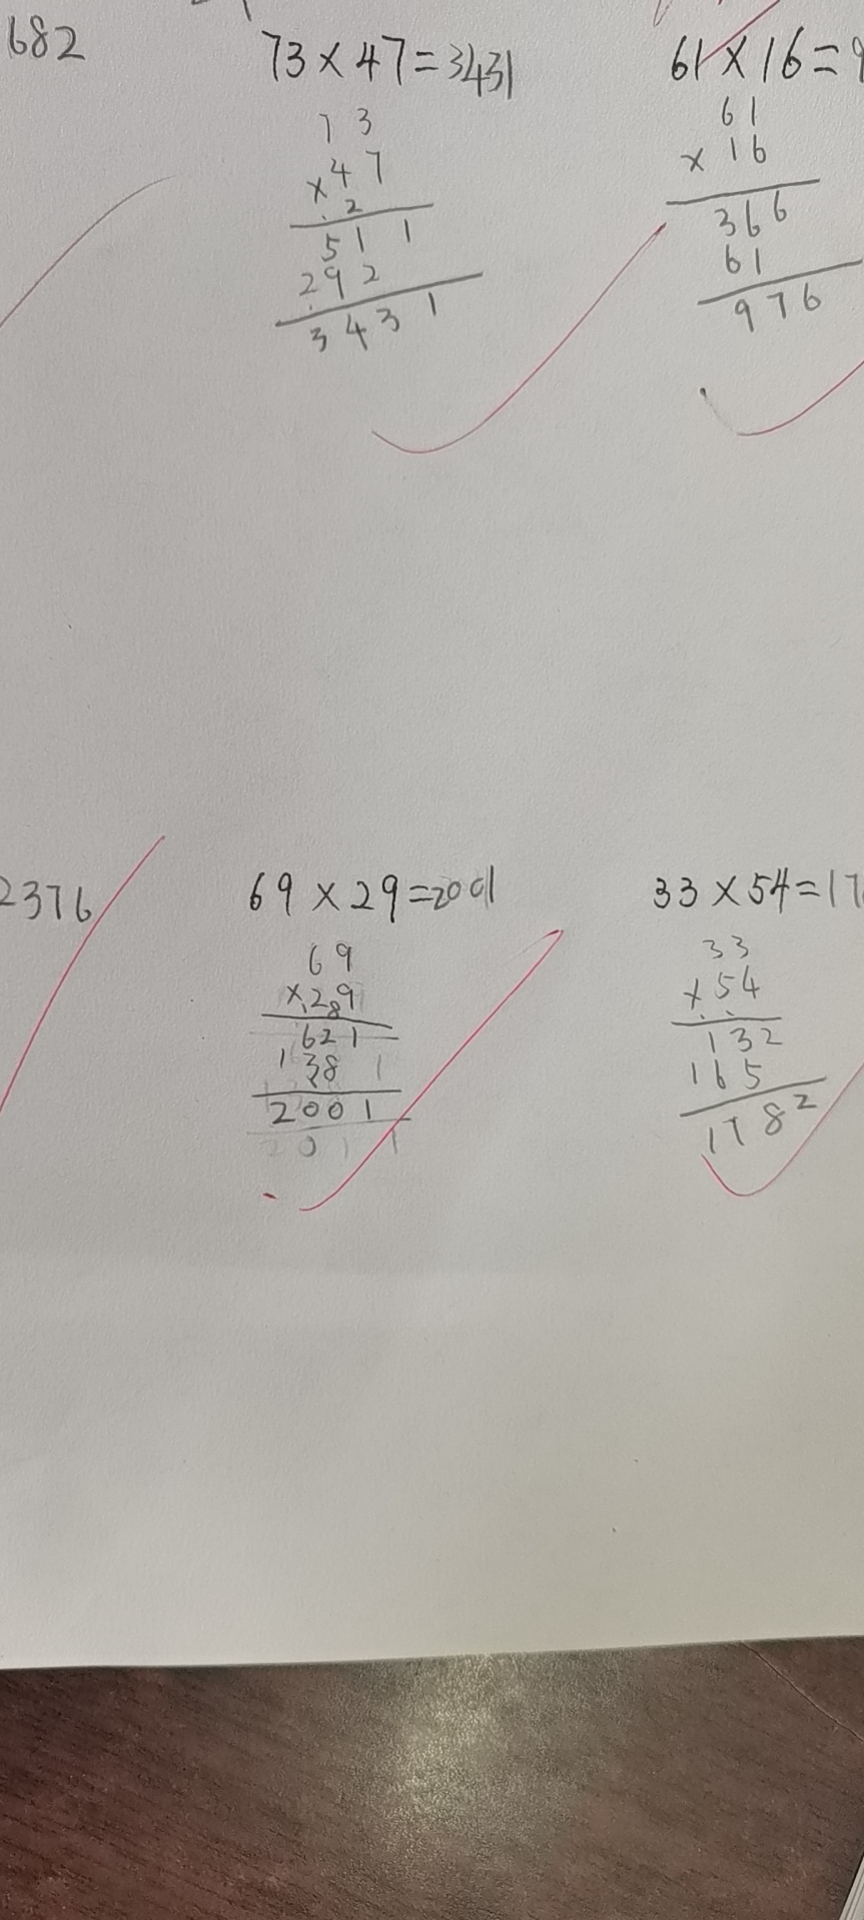 682
73×47=3431
73
×47
2
511
292
3431
61×16=9
61
×16
366
61
976
2376
69×29=2001
69
×29
8
621
138
2001
33×54=17
33
×54
132
165
1782